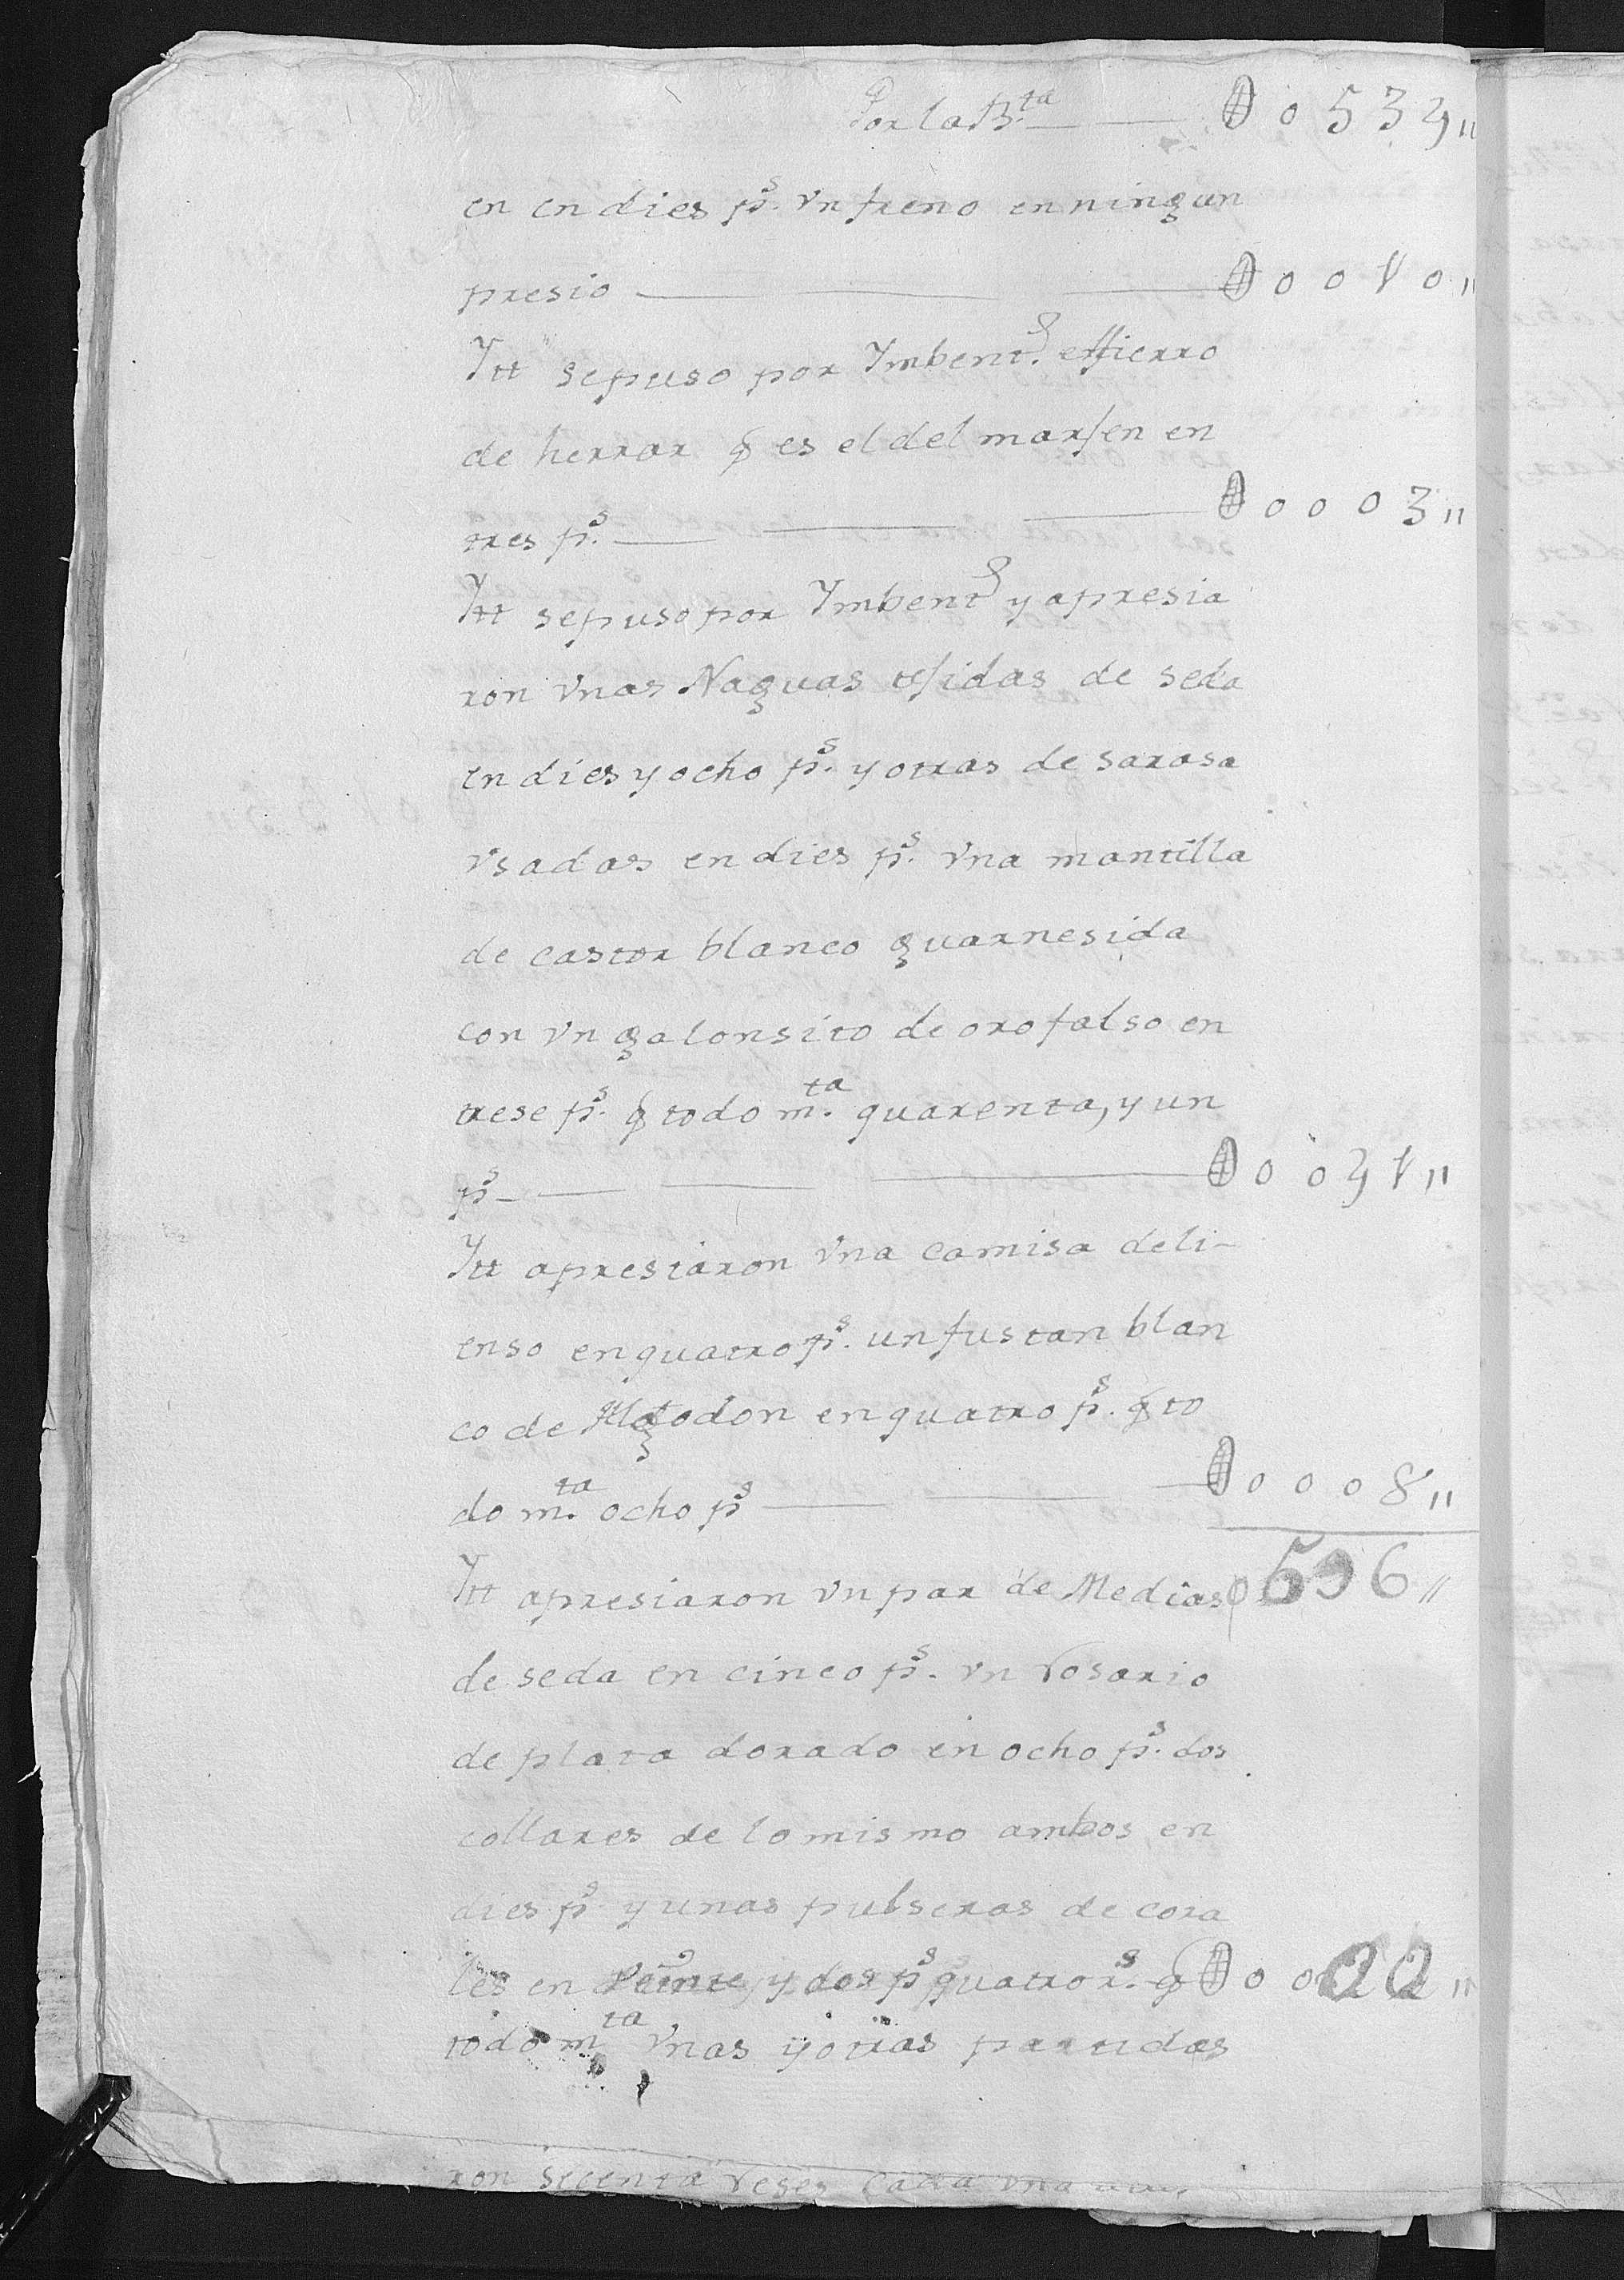 Por la B.ta — — 0 0 5 3 4 "
en en dies ps. vn freno en ningun
presio — — — 0 0 0 1 0 "
Itt se puso por Ymbent.o el fierro
de herrar q es el del marjen en
tres ps. — — — 0 0 0 0 3 "
Itt se puso por Ymbento y apresia
ron vnas Naguas tejidas de seda
en dies y ocho ps. y otras de sarasa
vsadas en dies ps. vna mantilla
de castor blanco guarnesida
con vn galonsito de oro falso en
trese ps. q todo m.ta quarenta, y un
ps — — — 0 0 0 4 1 "
Itt apresiaron vna camisa de li-
enso en quatro ps. un fustan blan
co de Algodon en quatro ps. q to
do m.ta ocho ps — — — 0 0 0 0 8 "
596 "
Itt apresiaron vn par de Medias
de seda en cinco ps. vn rosario
de plata dorado en ocho ps. dos
collares de lo mismo ambos en
dies ps y unas pulseras de cora
les en veinte y dos ps quatro rs. q 0 0 0 22 "
todo mta vnas y otras partidas
ron secenta reses cada vna